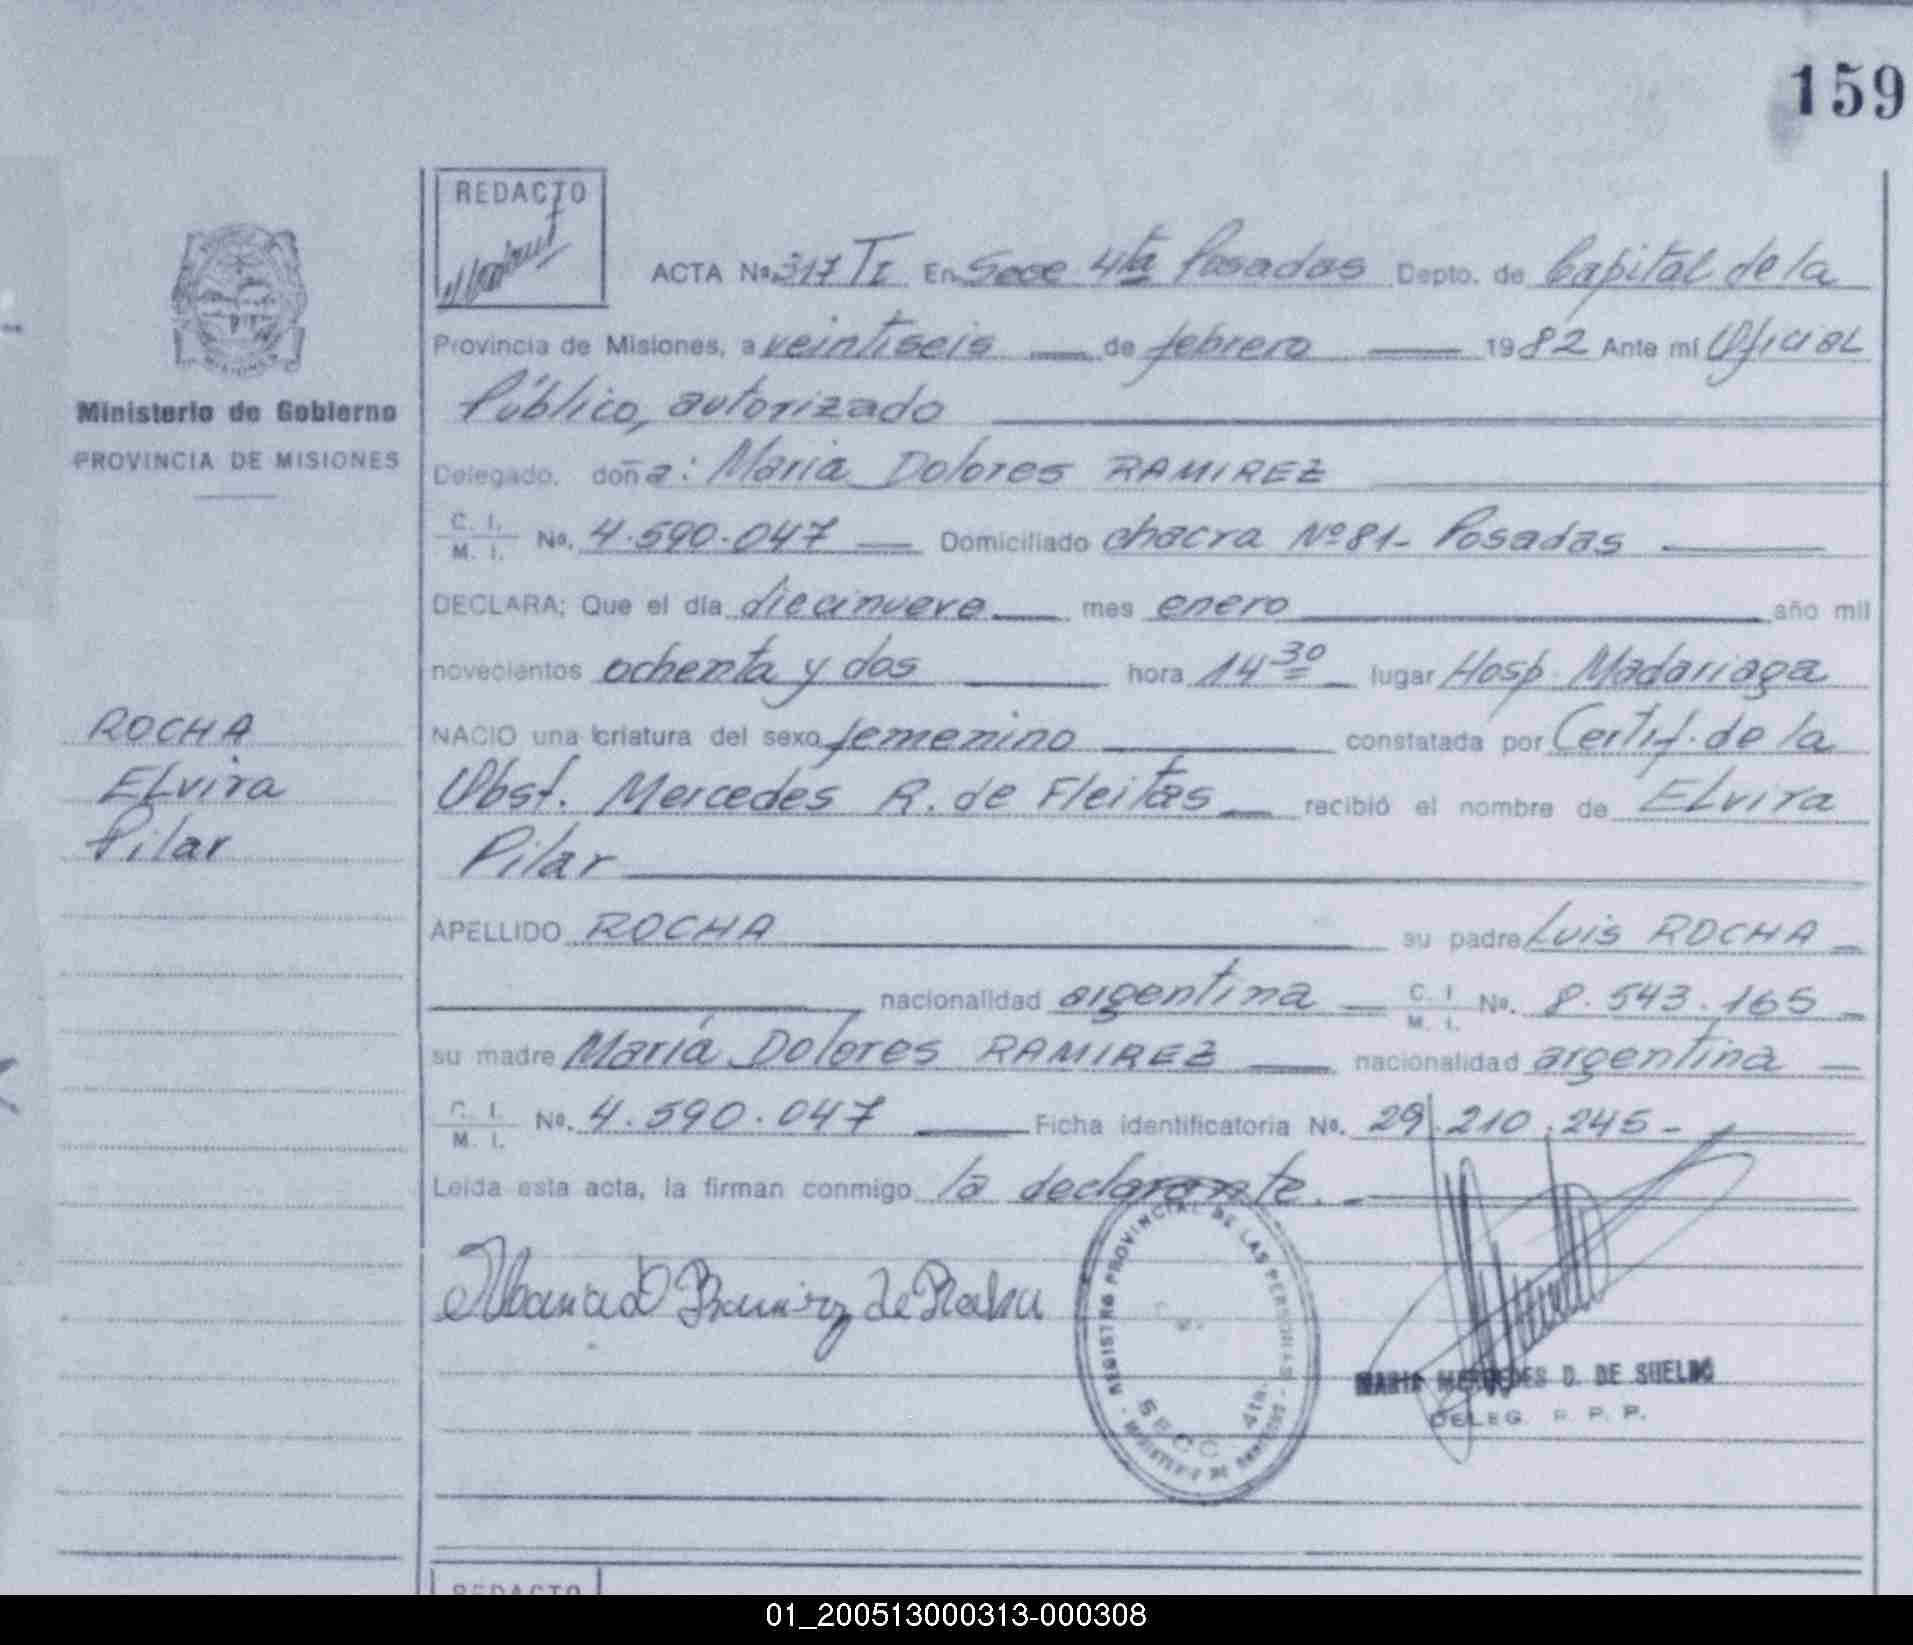 159
REDACTO
ACTA No. 317 TI En Secc 4ta Posadas Depto. de Capital de la
Provincia de Misiones, a veintiseis de febrero 1982 Ante mí Oficial
Público, autorizado
Delegado, doña: María Dolores RAMIREZ
C. I.
M. I. No. 4.590.047 Domiciliado chacra Nº 81- Posadas
DECLARA; Que el día diecinueve mes enero año mil
novecientos ochenta y dos hora 14 30 lugar Hosp. Madariaga
NACIO una criatura del sexo femenino constatada por Certif. de la
Obst. Mercedes R. de Fleitas recibió el nombre de ELvira
Pilar
APELLIDO ROCHA su padre Luis ROCHA
nacionalidad argentina C. I. M. I. No. 8.543.165
su madre María Dolores RAMIREZ nacionalidad argentina
C. I.
M. I. No. 4.590.047 Ficha identificatoria No. 29.210.245-
Leída esta acta, la firman conmigo la declarante.
Ministerio de Gobierno
PROVINCIA DE MISIONES
ROCHA
ELvira
Pilar
Ramirez de Rocha
REGISTRO PROVINCIAL DE LAS PERSONAS
SECC 4ta.
MARIA MERCEDES D. DE SHELDO
DELEG. R. P. P.
REDACTO
01_200513000313-000308